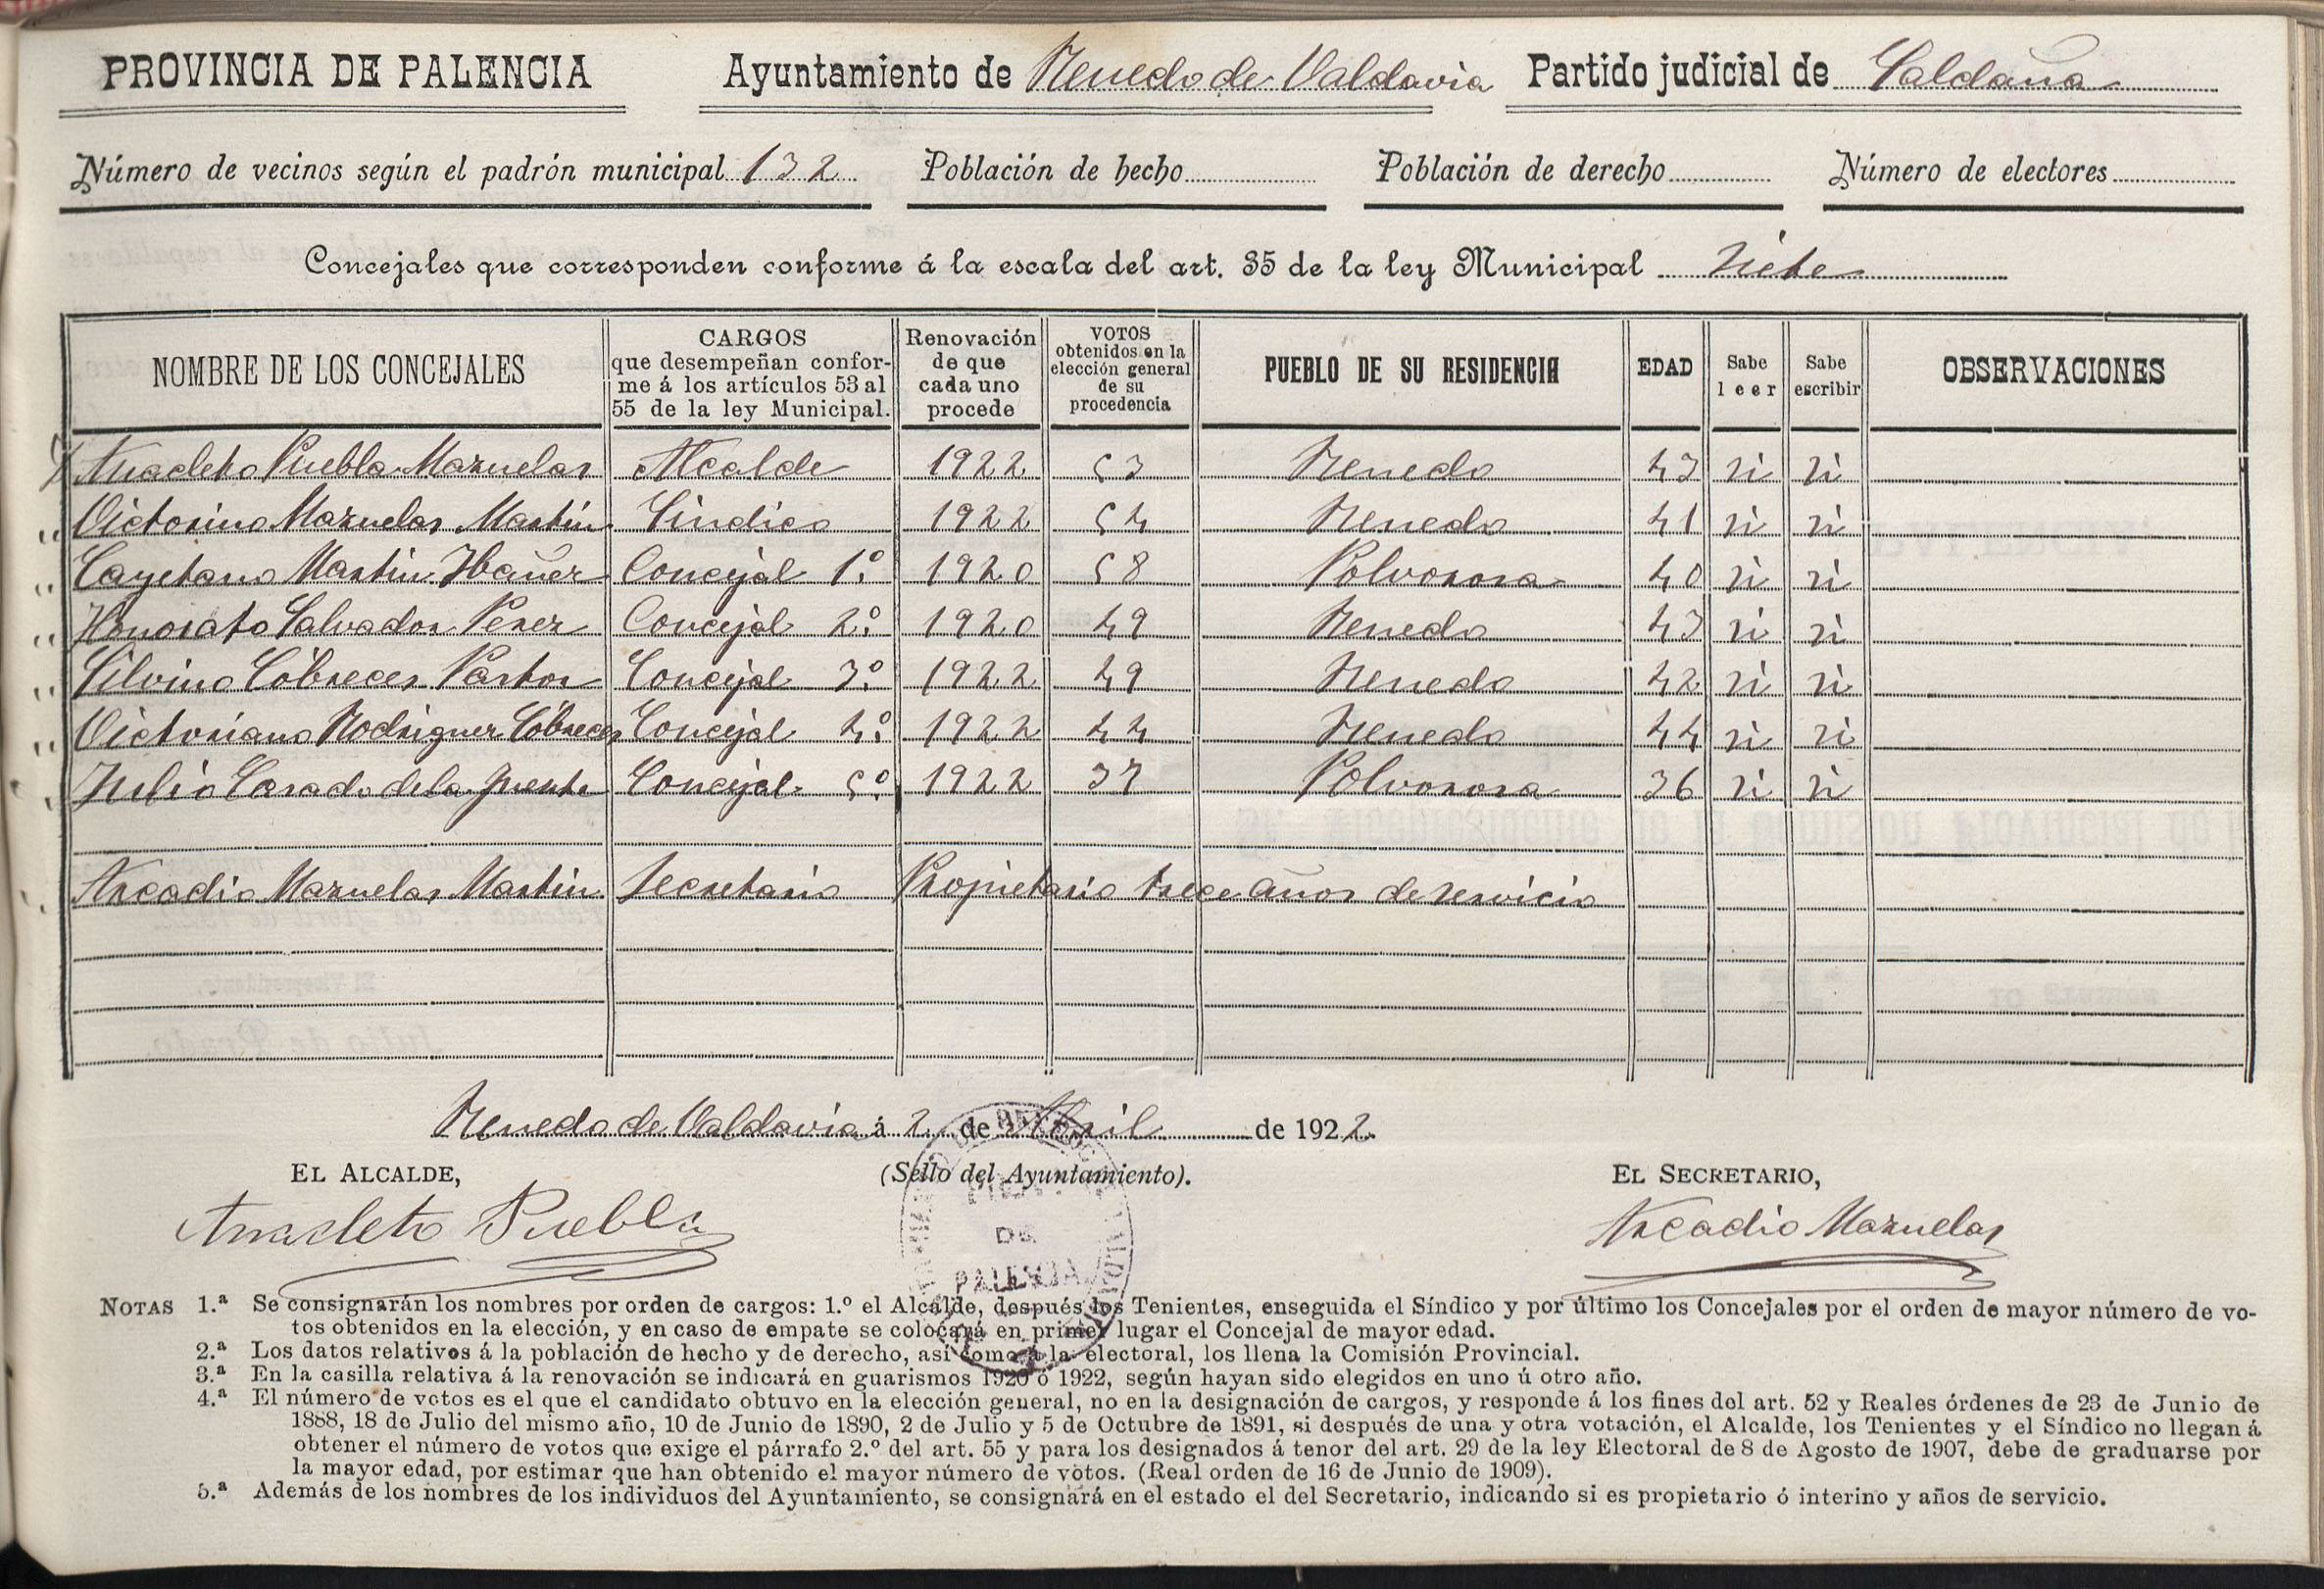 PROVINCIA DE PALENCIA Ayuntamiento de Renedo de Valdavia Partido judicial de Saldaña
Número de vecinos según el padrón municipal 132 Población de hecho Población de derecho Número de electores
Concejales que corresponden conforme á la escala del art. 35 de la ley Municipal siete
NOMBRE DE LOS CONCEJALES
CARGOS
que desempeñan confor-
me á los artículos 53 al
55 de la ley Municipal.
Renovación
de que
cada uno
procede
VOTOS
obtenidos en la
elección general
de su
procedencia
PUEBLO DE SU RESIDENCIA
EDAD
Sabe
leer
Sabe
escribir
OBSERVACIONES
Anacleto Puebla Mazuelas Alcalde 1922 53 Renedo 43 si si
Victorino Mazuelas Martin Sindico 1922 54 Renedo 41 si si
Cayetano Martin Ibañez Concejal 1.º 1920 58 Polvorosa 40 si si
Honorato Salvador Perez Concejal 2.º 1920 49 Renedo 43 si si
Silvino Cóbreces Pastor Concejal 3.º 1922 49 Renedo 42 si si
Victoriano Rodriguez Cóbreces Concejal 4.º 1922 44 Renedo 44 si si
Julio Casado de la Fuente Concejal 5.º 1922 37 Polvorosa 36 si si
Arcadio Mazuelas Martin Secretario Propietario trece años de servicio
Renedo de Valdavia á 2 de Abril de 1922
EL ALCALDE, (Sello del Ayuntamiento). EL SECRETARIO,
Anacleto Puebla Arcadio Mazuelas
DE
PALENCIA
NOTAS 1.ª Se consignarán los nombres por orden de cargos: 1.º el Alcalde, después los Tenientes, enseguida el Síndico y por último los Concejales por el orden de mayor número de vo-
tos obtenidos en la elección, y en caso de empate se colocará en primer lugar el Concejal de mayor edad.
2.ª Los datos relativos á la población de hecho y de derecho, así como á la electoral, los llena la Comisión Provincial.
3.ª En la casilla relativa á la renovación se indicará en guarismos 1920 ó 1922, según hayan sido elegidos en uno ú otro año.
4.ª El número de votos es el que el candidato obtuvo en la elección general, no en la designación de cargos, y responde á los fines del art. 52 y Reales órdenes de 23 de Junio de
1888, 18 de Julio del mismo año, 10 de Junio de 1890, 2 de Julio y 5 de Octubre de 1891, si después de una y otra votación, el Alcalde, los Tenientes y el Síndico no llegan á
obtener el número de votos que exige el párrafo 2.º del art. 55 y para los designados á tenor del art. 29 de la ley Electoral de 8 de Agosto de 1907, debe de graduarse por
la mayor edad, por estimar que han obtenido el mayor número de votos. (Real orden de 16 de Junio de 1909).
5.ª Además de los nombres de los individuos del Ayuntamiento, se consignará en el estado el del Secretario, indicando si es propietario ó interino y años de servicio.